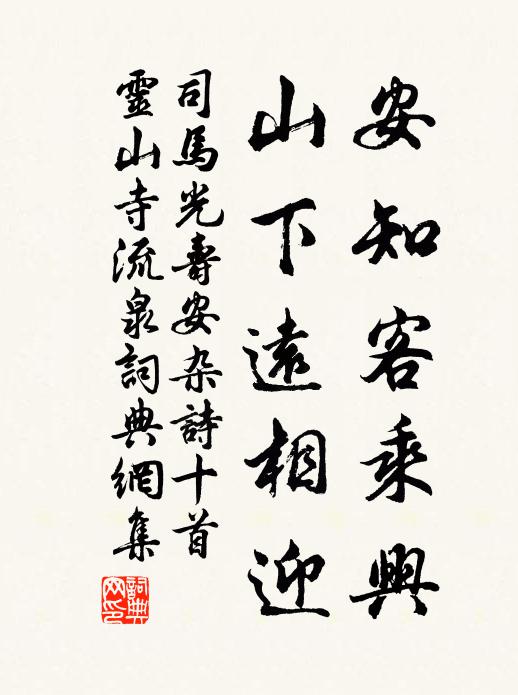 安知客乘興
山下遠相迎
司馬光壽安杂詩十首
靈山寺流泉詞典網集
詞典網印